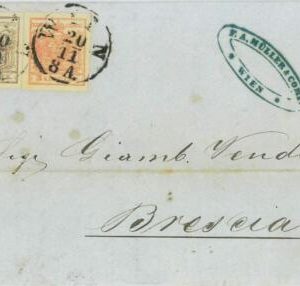 WIEN
20
11
8 A.
F. A. MÜLLER & COMP.
WIEN
Sigr Giamb. Vend
Brescia